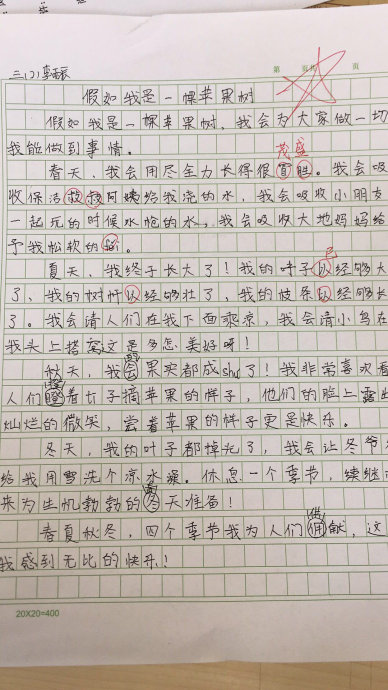 第 页 共 页
三(2)
假如我是一棵苹果树
假如我是一棵苹果树,我会为大家做一切
我能做到事情。
茂盛
春天,我会用尽全力长得很冒胜。我会吸
收保洁叔叔阿姨给我浇的水,我会吸收小朋友
一起玩的时候水枪的水,我会吸收大地妈妈给
予我松软的
已
夏天,我终于长大了!我的叶子以经够大
了、我的树干以经够壮了、我的枝条以经够长
了。我会请人们在我下面乘凉,我会请小鸟在
我头上搭窝这是多怎美好呀!
秋天,我会果实都成shú了!我非常喜欢看
人们着上子摘苹果的样子,他们的脸上露出
灿烂的微笑,尝着苹果的样子更是快乐。
冬天,我的叶子都掉光了,我会让冬爷
给我用雪洗个凉水澡。休息一个季节,续继
来为生机勃勃的冬天准备!
春
春夏秋冬,四个季节我为人们献,这
我感到无比的快乐!
20X20=400